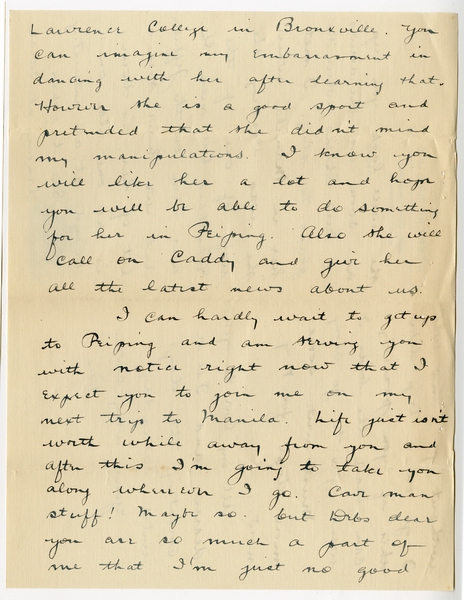 Lawrence College in Bronxville. You
can imagine my embarrassment in
dancing with her after learning that.
However she is a good sport and
pretended that she didn't mind
my manipulations. I know you
will like her a lot and hope
you will be able to do something
for her in Peiping. Also she will
call on Caddy and give her
all the latest news about us.
I can hardly wait to get up
to Peiping and am serving you
with notice right now that I
expect you to join me on my
next trip to Manila. Life just isn't
worth while away from you and
after this I'm going to take you
along wherever I go. Cave man
stuff! Maybe so. but Debs dear
you are so much a part of
me that I'm just no good